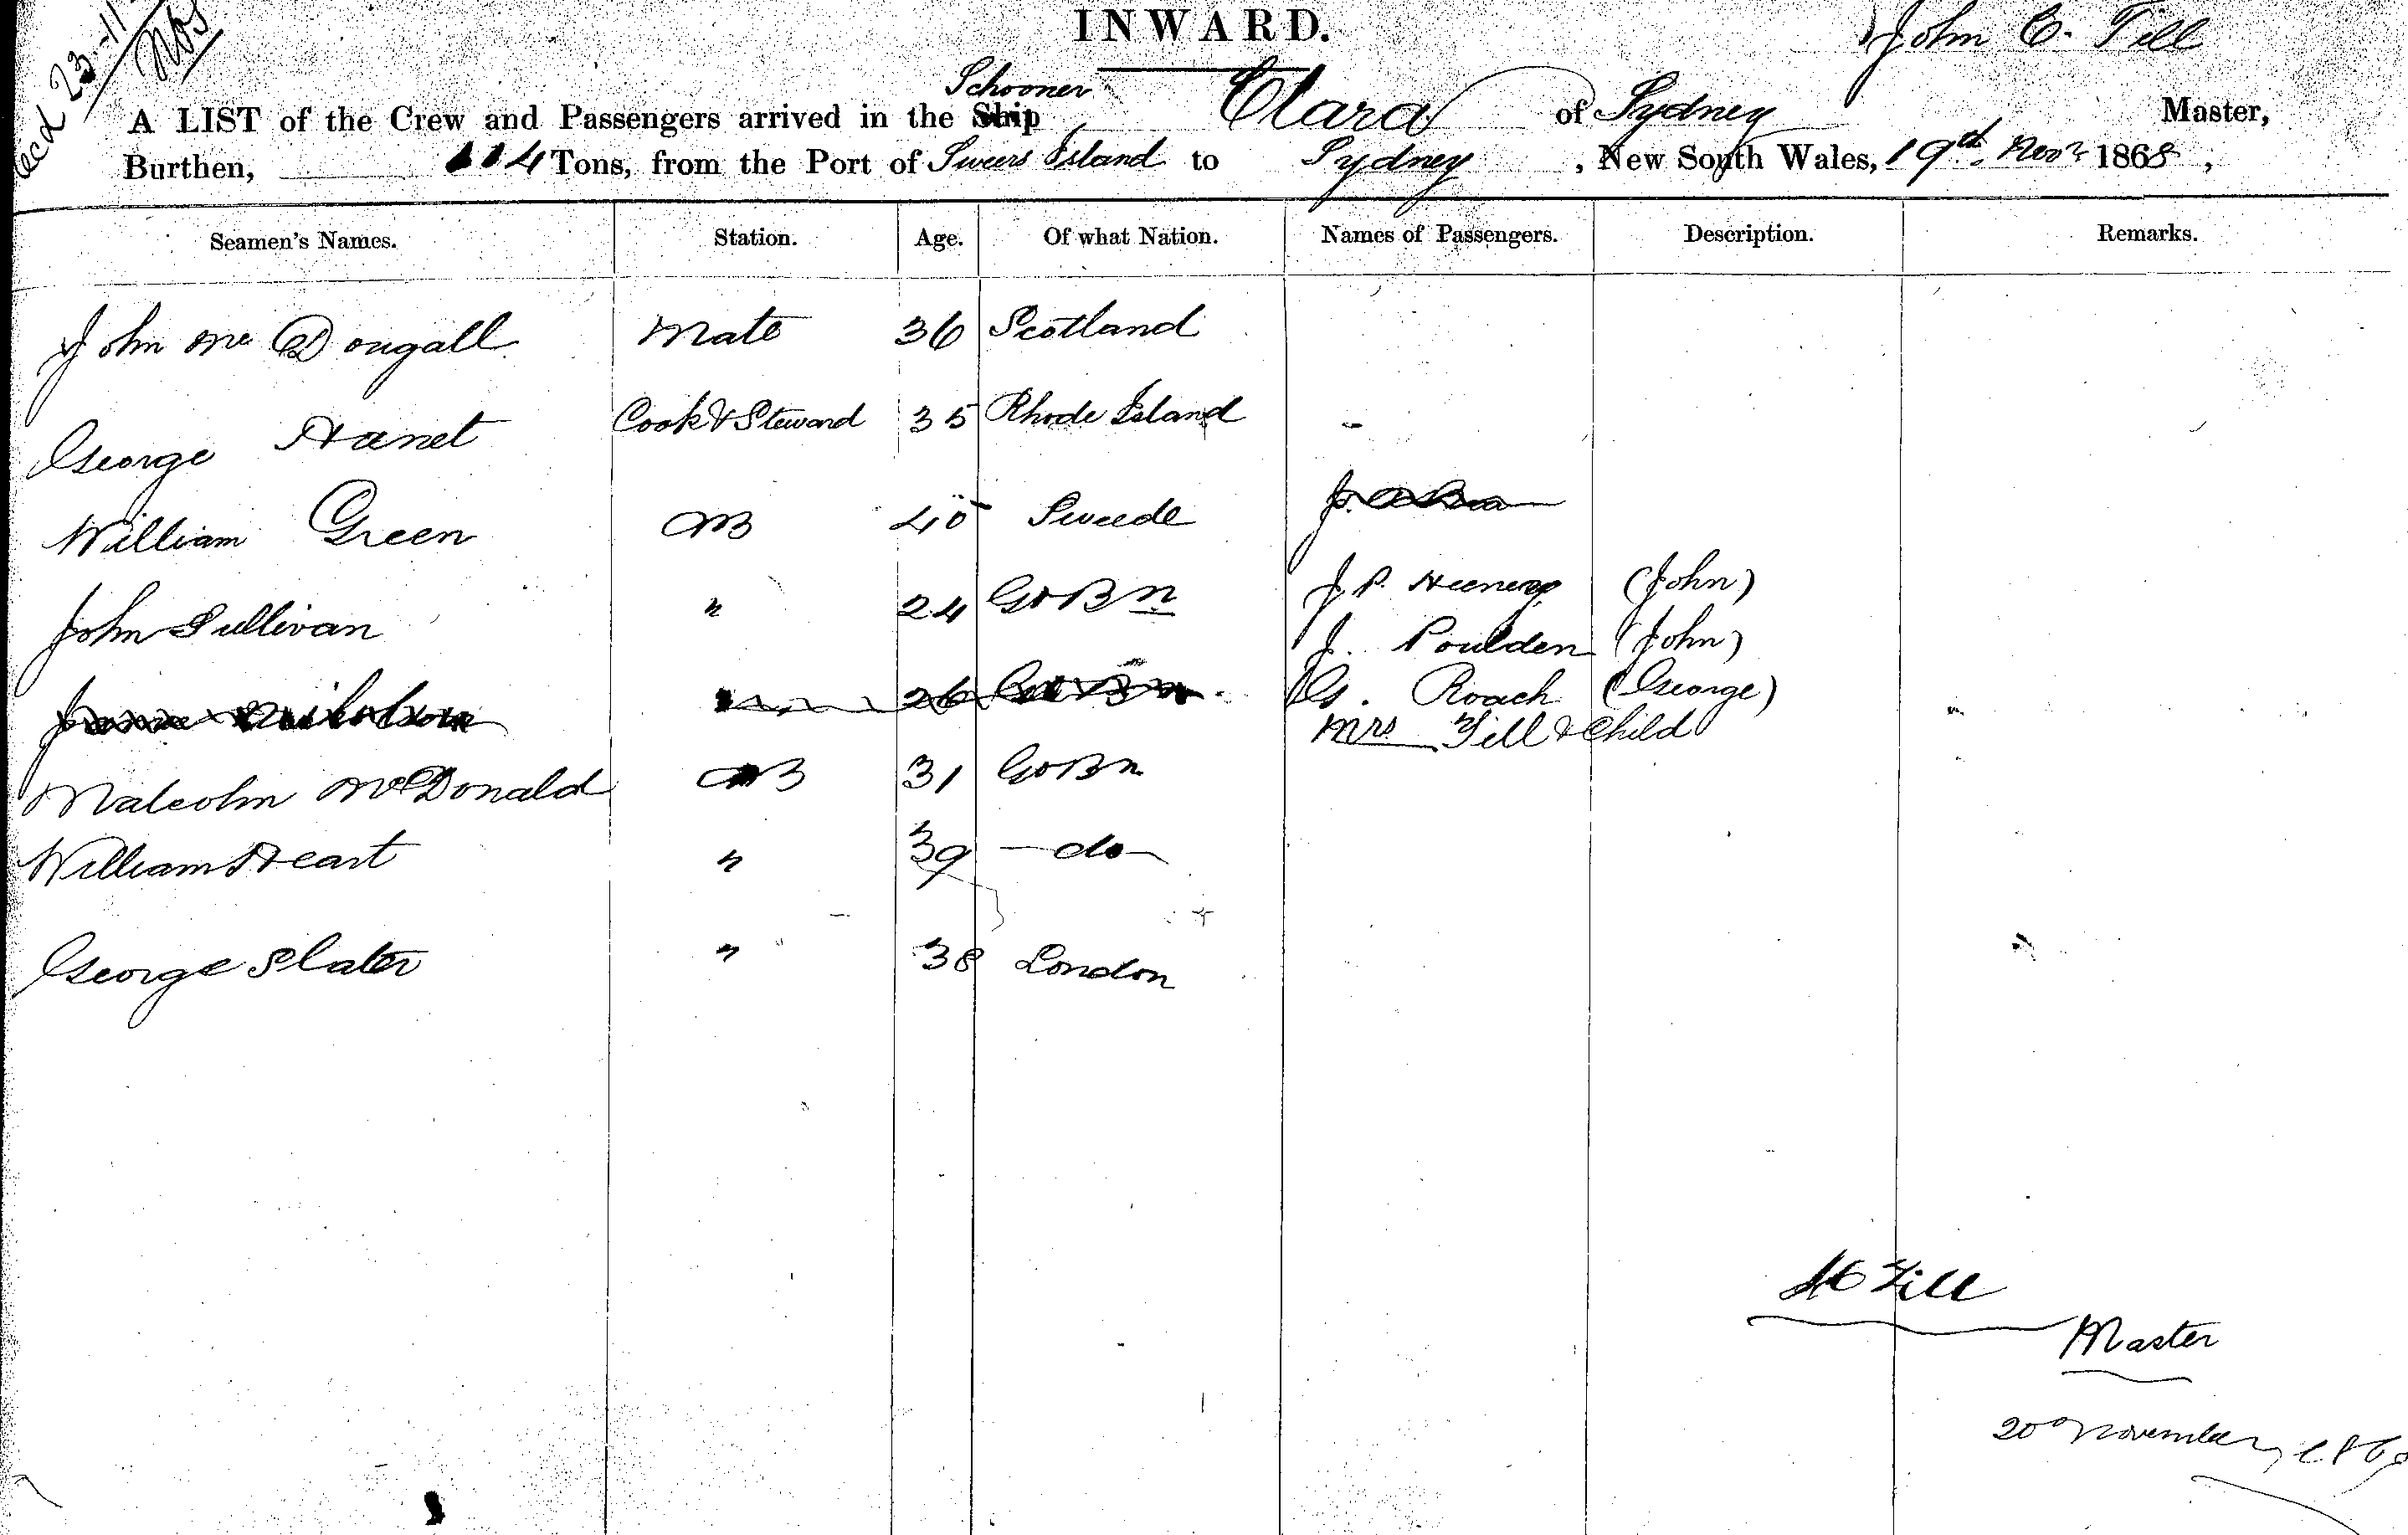 recd 23-11
INWARD.
John C. Till
A LIST of the Crew and Passengers arrived in the Ship Schooner Clara of Sydney Master,
Burthen, 114 Tons, from the Port of Sweers Island to Sydney, New South Wales, 19th Novr 1868,
Seamen's Names. Station. Age. Of what Nation. Names of Passengers. Description. Remarks.
John Mc Dougall Mate 36 Scotland
George Hanet Cook & Steward 35 Rhode Island
William Green AB 40 Sweede
John Sullivan " 24 Gt Bn J. P. (John)
J. Poulden (John)
26 G. Roach (George)
Mrs Till & Child
Malcolm McDonald AB 31 Gt Bn
William Heart " 39 do
George Slater " 38 London
JC Till
Master
20 November 1868